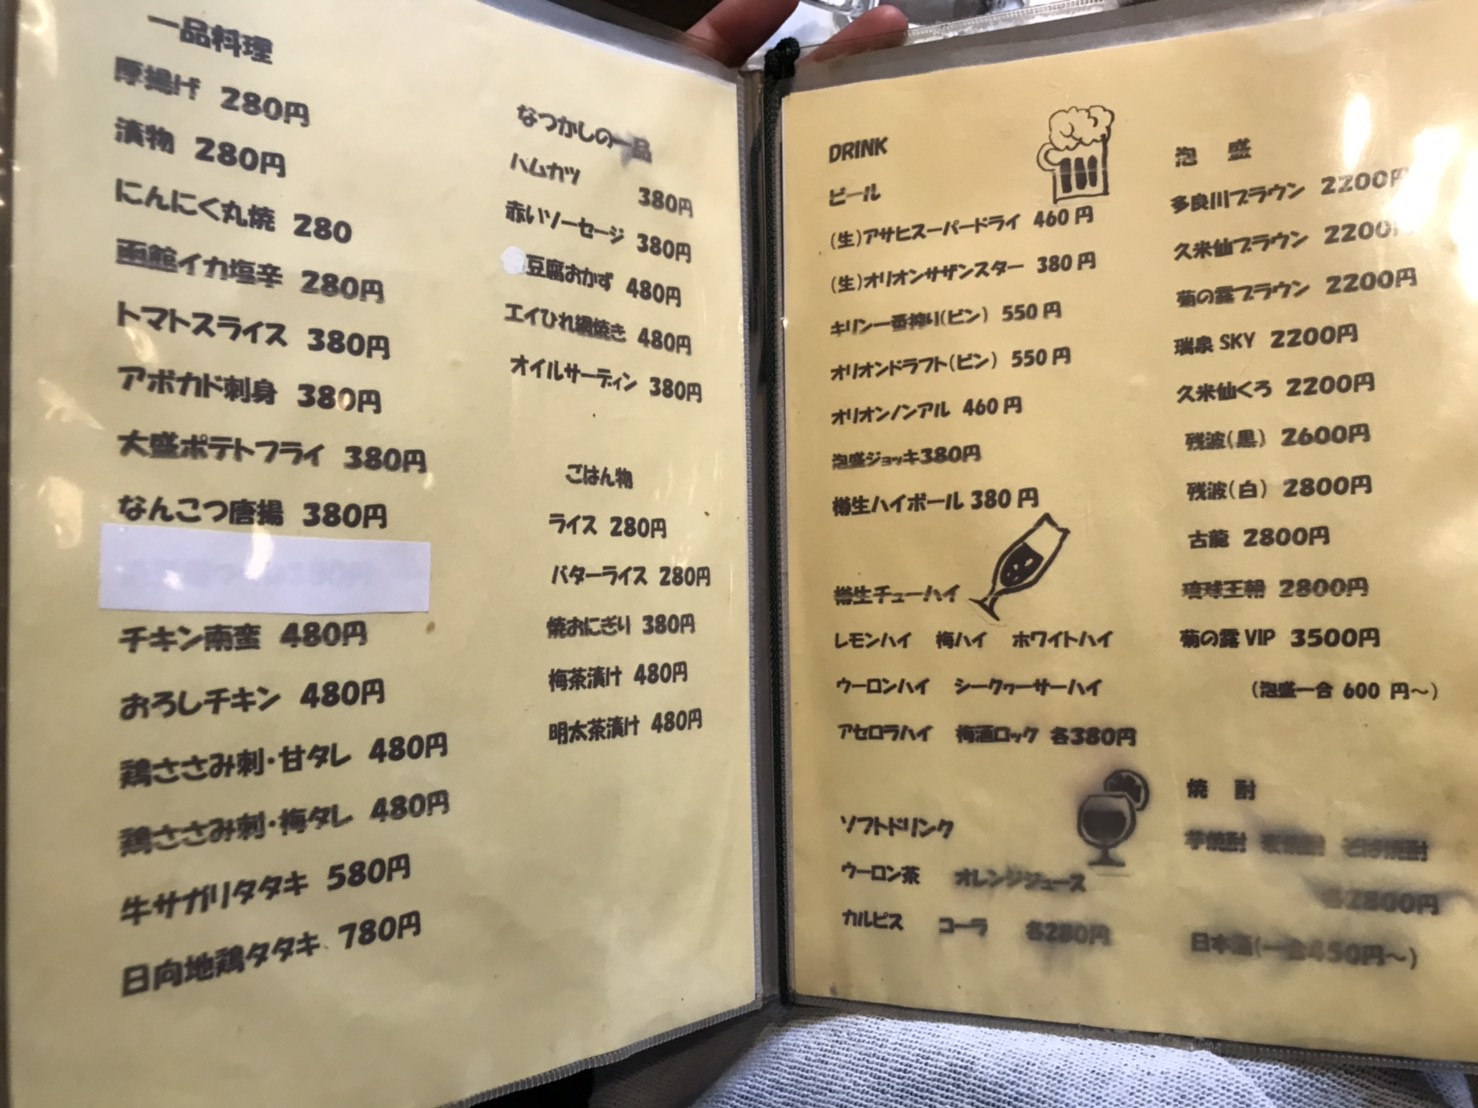 一品料理
厚揚げ 280円
漬物 280円
にんにく丸焼 280
函館イカ塩辛 280円
トマトスライス 380円
アボカド刺身 380円
大盛ポテトフライ 380円
なんこつ唐揚 380円
チキン南蛮 480円
おろしチキン 480円
鶏ささみ刺・甘タレ 480円
鶏ささみ刺・梅タレ 480円
牛サガリタタキ 580円
日向地鶏タタキ 780円
なつかしの一品
ハムカツ 380円
赤いソーセージ 380円
豆腐おかず 480円
エイひれ網焼き 480円
オイルサーディン 380円
ごはん物
ライス 280円
バターライス 280円
焼おにぎり 380円
梅茶漬け 480円
明太茶漬け 480円
DRINK
ビール
(生)アサヒスーパードライ 460円
(生)オリオンサザンスター 380円
キリン一番搾り(ビン) 550円
オリオンドラフト(ビン) 550円
オリオンノンアル 460円
泡盛ジョッキ380円
樽生ハイボール 380円
樽生チューハイ
レモンハイ 梅ハイ ホワイトハイ
ウーロンハイ シークヮーサーハイ
アセロラハイ 梅酒ロック 各380円
ソフトドリンク
ウーロン茶 オレンジジュース
カルピス コーラ 各280円
泡 盛
多良川ブラウン 2200円
久米仙ブラウン 2200円
菊の露ブラウン 2200円
瑞泉 SKY 2200円
久米仙くろ 2200円
残波(黒) 2600円
残波(白) 2800円
古龍 2800円
琉球王朝 2800円
菊の露 VIP 3500円
(泡盛一合 600 円〜)
焼 酎
芋焼酎 麦焼酎 そば焼酎
各2800円
日本酒(一合450円〜)